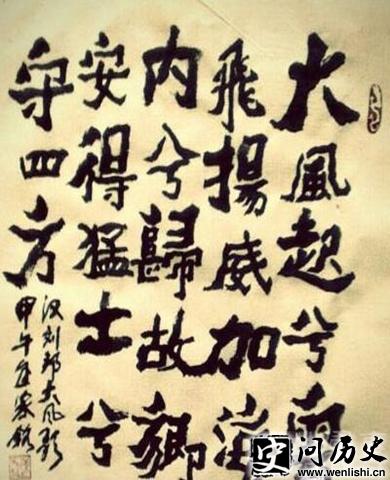 大風起兮雲
飛揚威加海
内兮歸故鄉
安得猛士兮
守四方
汉刘邦大风歌
甲午年
问历史
www.wenlishi.com